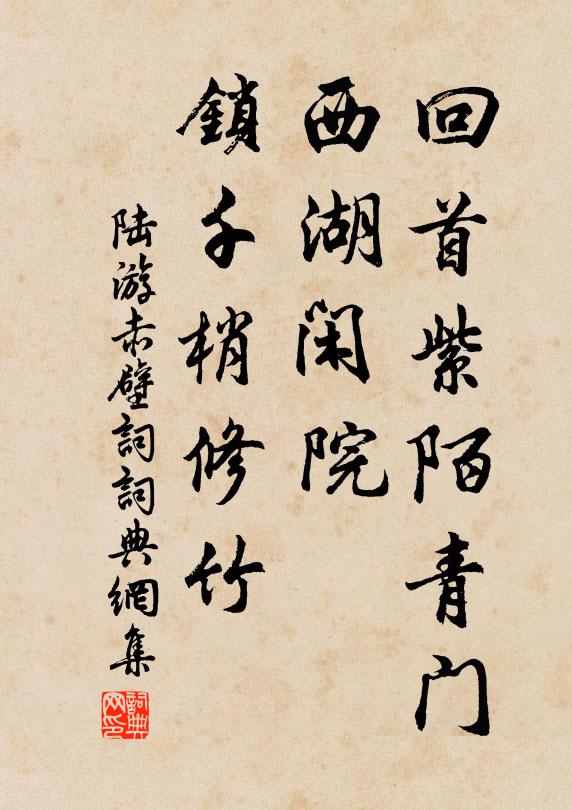 回首紫陌青门
西湖闲院
鎖千梢修竹
陆游赤壁詞詞典網集
詞典网印